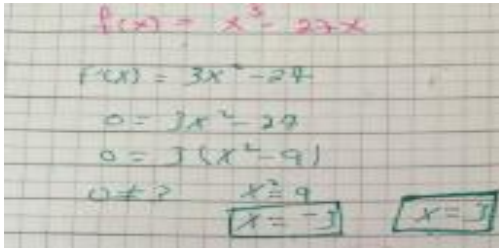 f(x) = x³ - 27x
f'(x) = 3x² - 27
0 = 3x² - 27
0 = 3(x² - 9)
0 ≠ 3 x² = 9
x = -3 x = 3